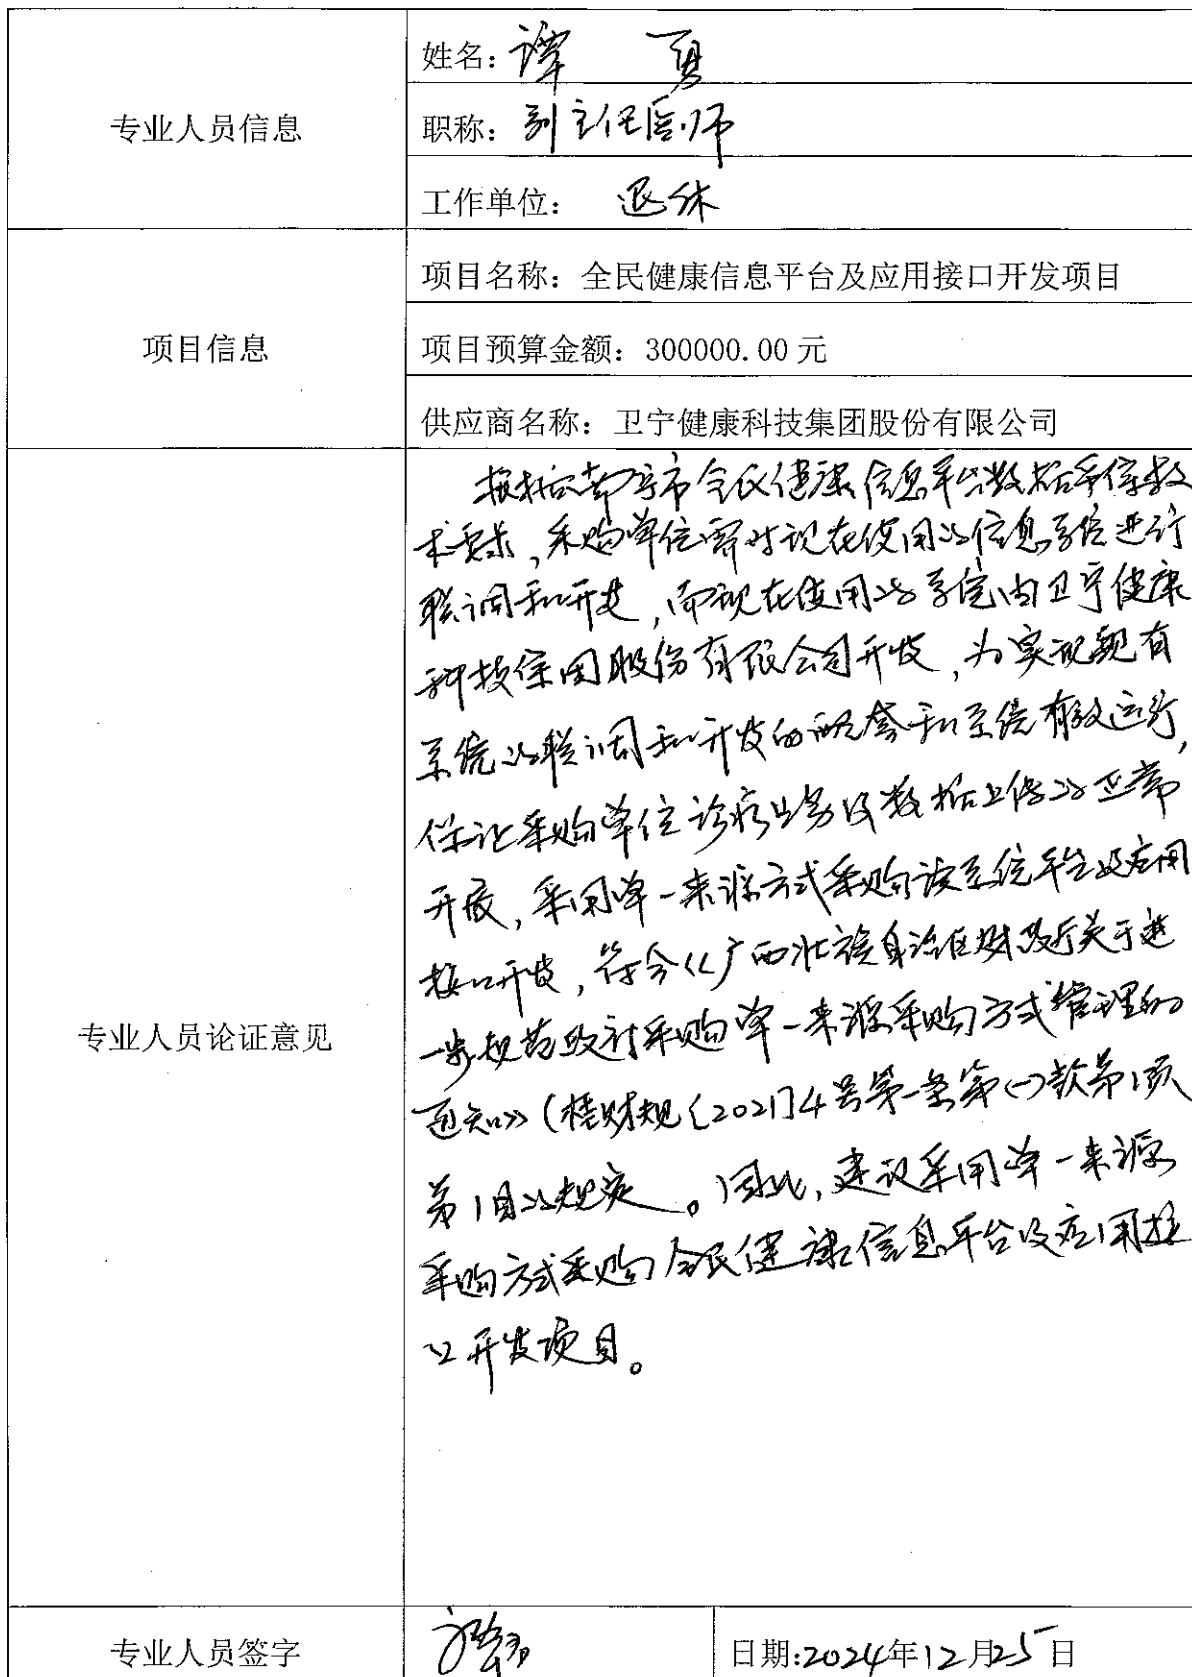 姓名：谭 勇
专业人员信息
职称：副主任医师
工作单位：退休
项目名称：全民健康信息平台及应用接口开发项目
项目信息
项目预算金额：300000.00元
供应商名称：卫宁健康科技集团股份有限公司
根据南宁市全民健康信息平台数据采集技
术要求，采购单位需对现在使用的信息系统进行
联调和开发，而现在使用的系统由卫宁健康
科技集团股份有限公司开发，为实现现有
系统的联调和开发的配套和系统有效运行，
保证采购单位诊疗业务及数据上传的正常
开展，采用单一来源方式采购该系统平台及应用
接口开发，符合《广西壮族自治区财政厅关于进
专业人员论证意见
一步规范政府采购单一来源采购方式管理的
通知》（桂财规〔2021〕4号第一条第(一)款第1项
第1目的规定。因此，建议采用单一来源
采购方式采购全民健康信息平台及应用接
口开发项目。
专业人员签字
日期:2024年12月25日